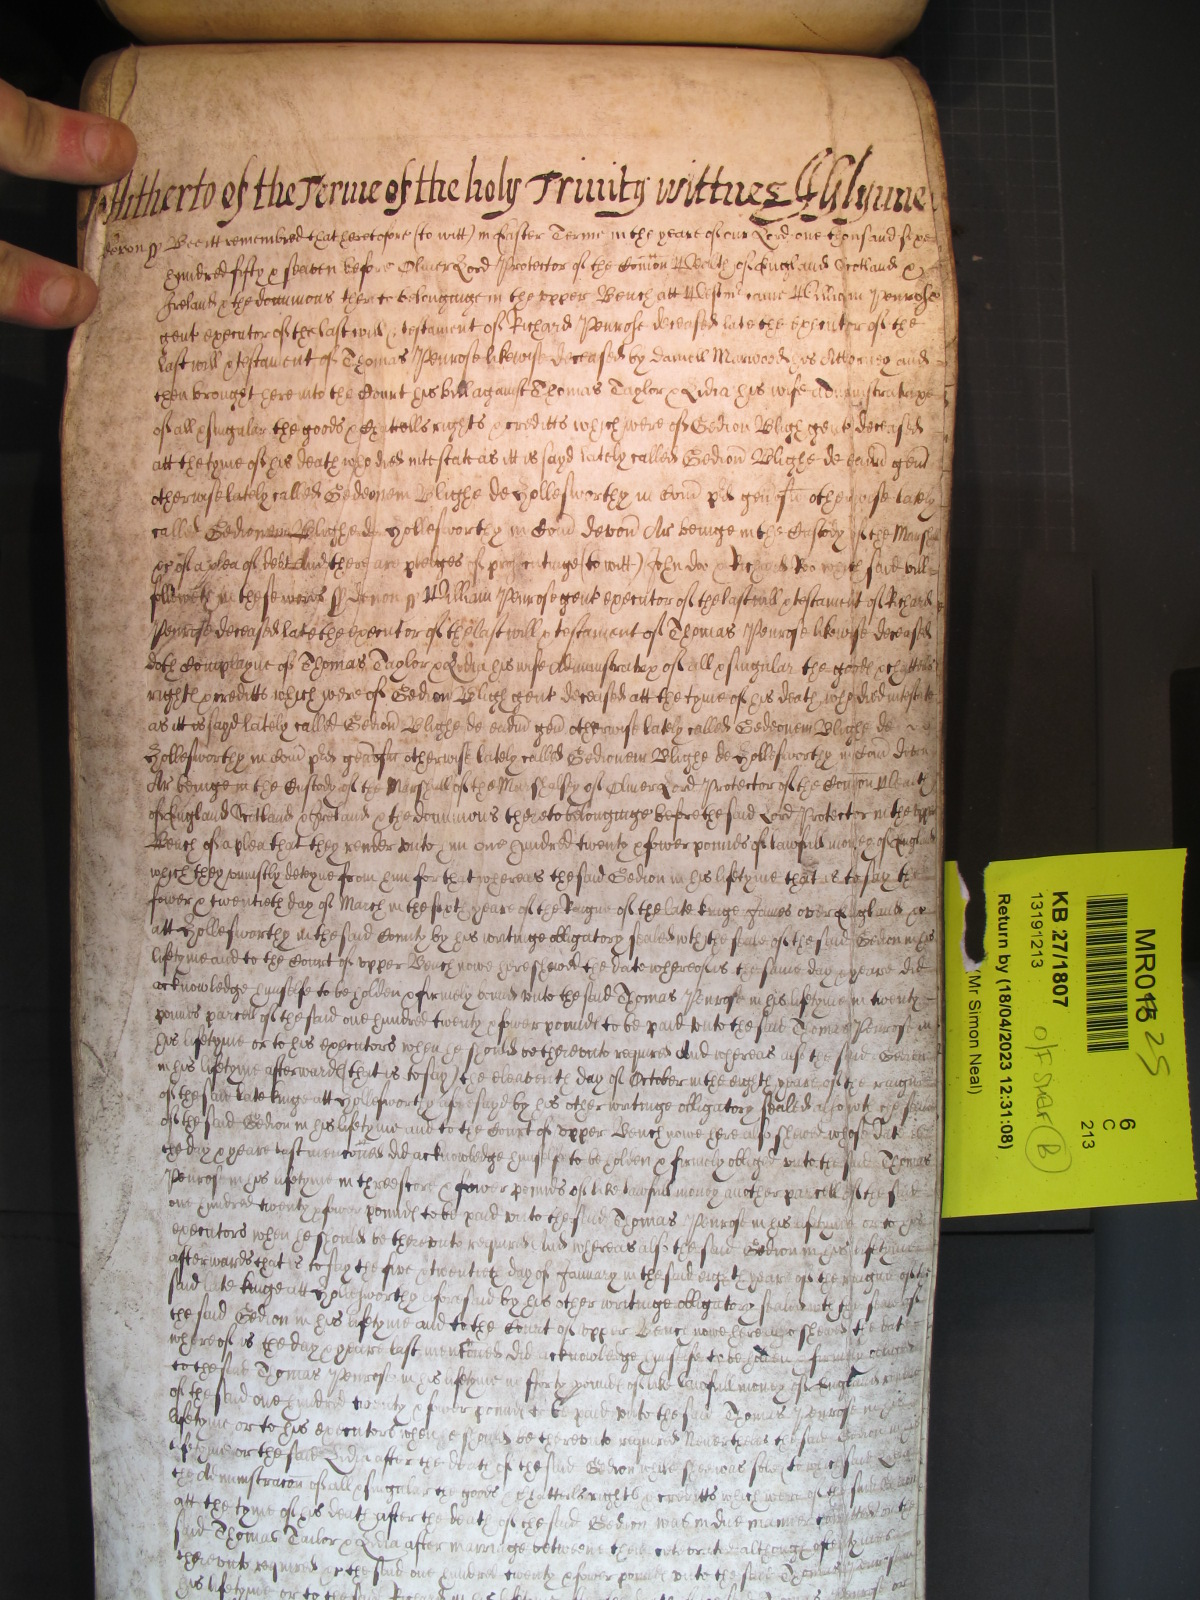 Hitherto of the Terme of the holy Trinity wittnes
Devon ss Bee itt remembred that heretofore (to witt) in Easter Terme in the yeare of our Lord one thousand sixe
hundred fifty & seaven before Oliver Lord Protector of the Comon Wealth of England Scotland &
Ireland & the dominions thereto belonginge in the upper Bench att Westmr came William Penrose
gent executor of the last will & testament of Richard Penrose deceased late the executor of the
last will & testament of Thomas Penrose likewise deceased by Daniell Marwood his Attorney and
then brought here into the Court his bill against Thomas Taylor & Lidia his wife Administratrixe
of all & singular the goods & Chattells rights & creditts which were of Gedion Bligh gent deceased
att the tyme of his death who died intestate as itt is sayd lately called Gedion Blighe de eadm gent
otherwise lately called Gedeonem Blighe de Hollesworthy in Com pd otherwise lately
called Gedionem Blighe de Hollesworthy in Com Devon Ar beinge in the Custody of the Marshall
&c of a plea of debt And there are pledges of prosecutinge (to witt) John Doo & Richard Roo which said bill
followeth in these words ss Devon ss William Penrose gent executor of the last will & testament of Richard
Penrose deceased late the executor of the last will & testament of Thomas Penrose likewise deceased
doth Complayne of Thomas Taylor & Lidia his wife Administratrix of all & singular the goods & chattells
rights & creditts which were of Gedion Bligh gent deceased att the tyme of his death who died intestate
as itt is sayd lately called Gedion Blighe de eadm gent otherwise lately called Gedeonem Blighe de
Hollesworthy in Com pd otherwise lately called Gedionem Blighe de Hollesworthy in Com Devon
Ar beinge in the Custody of the Marshall of the Marshalsey of Oliver Lord Protector of the Comon Wealth
of England Scotland & Ireland & the dominions thereto belonginge before the said Lord Protector in the upper
Bench of a plea that they render unto him one hundred twenty & fower pounds of lawfull money of England
which they uniustly detayne from him for that whereas the said Gedion in his lifetyme that is to say the
fower & twentieth day of March in the sixth yeare of the Raigne of the late kinge James over England &c
att Hollesworthy in the said County by his writinge obligatory sealed with the seale of the said Gedion in his
lifetyme and to the Court of upper Bench nowe here shewed the date whereof is the same day & yeare did
acknowledge himselfe to be holden & firmely bound unto the said Thomas Penrose in his lifetyme in twenty
pounds parcell of the said one hundred twenty & fower pounds to be paid unto the said Thomas Penrose in
his lifetyme or to his executors when he should be thereunto required And whereas also the said Gedion
in his lifetyme afterwards (that is to say) the eleaventh day of October in the eighth yeare of the raigne
of the said late kinge att Hollesworthy aforesayd by his other writinge obligatory sealed also with the seale
of the said Gedion in his lifetyme and to the Court of upper Bench nowe here also shewed whose date is
the day & yeare last mencioned did acknowledge himselfe to be holden & firmely obliged unto the said Thomas
Penrose in his lifetyme in threescore & fower pounds of like lawfull money another parcell of the said
one hundred twenty & fower pounds to be paid unto the said Thomas Penrose in his lifetyme or to his
executors when he should be thereunto required And whereas also the said Gedion in his lifetyme
afterwards that is to say the five & twentieth day of January in the said eighth yeare of the raigne of the
said late kinge att Hollesworthy aforesaid by his other writinge obligatory sealed with the seale of
the said Gedion in his lifetyme and to the Court of upper Bench nowe here also shewed the date
whereof is the day & yeare last mencioned did acknowledge himselfe to be holden & firmely obliged
to the said Thomas Penrose in his lifetyme in forty pounds of like lawfull money of England
of the said one hundred twenty & fower pounds to be paid unto the said Thomas Penrose in his
lifetyme or to his executors when he should be thereunto required Neverthelesse the said Gedion in his
lifetyme or the said Lidia after the death of the said Gedion while shee was sole to which said Lidia
the Administracon of all & singular the goods & chattells rights & creditts which were of the said Gedion
att the tyme of his death after the death of the said Gedion was in due manner comitted or the
said Thomas Tailor & Lidia after marriage betweene them although oftentymes
thereunto required the said one hundred twenty & fower pounds unto the said Thomas Penrose in
his lifetyme or to the said Richard in his lifetyme
MR018 25
KB 27/1807
13191213
Return by (18/04/2023 12:31:08)
(Mr Simon Neal)
6
C
213
B